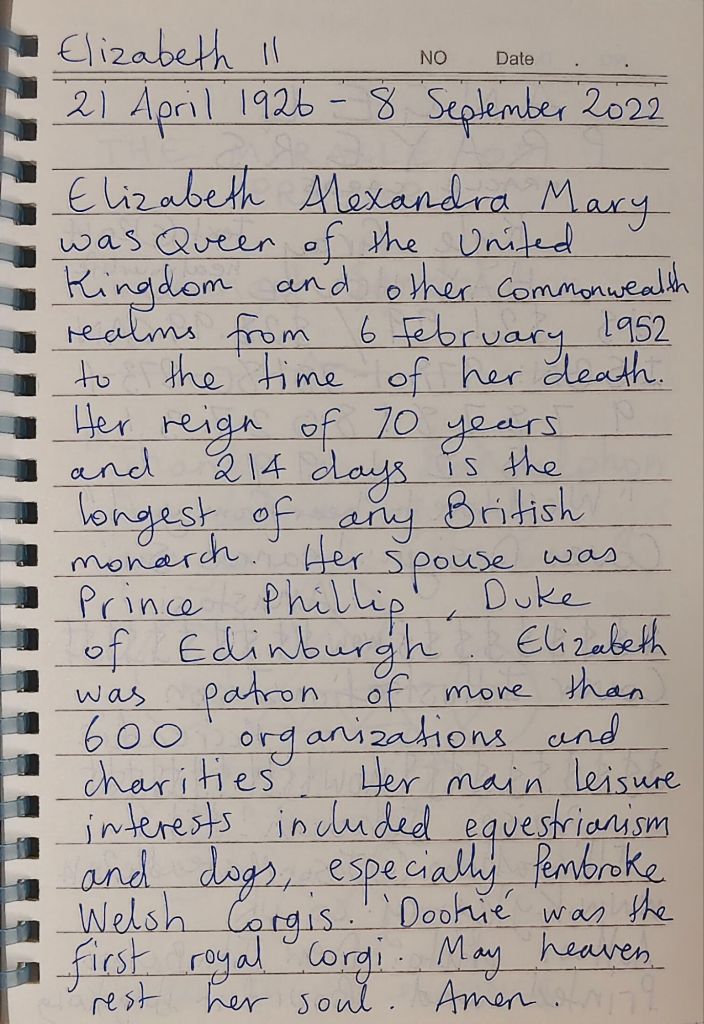 Elizabeth II
NO Date . .
21 April 1926 - 8 September 2022
Elizabeth Alexandra Mary
was Queen of the United
Kingdom and other Commonwealth
realms from 6 February 1952
to the time of her death.
Her reign of 70 years
and 214 days is the
longest of any British
monarch. Her spouse was
Prince Phillip, Duke
of Edinburgh. Elizabeth
was patron of more than
600 organizations and
charities. Her main leisure
interests included equestrianism
and dogs, especially Pembroke
Welsh Corgis. 'Dookie' was the
first royal Corgi. May heaven
rest her soul. Amen.